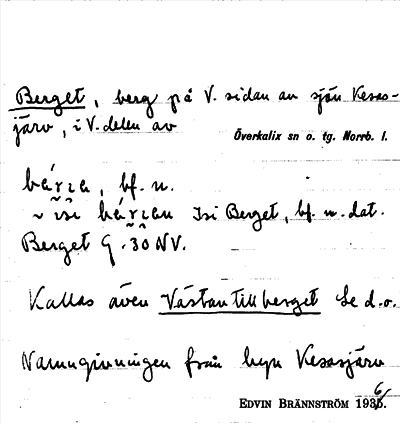 Berget, berg på V. sidan av sjön Kesas-
järv, i V. delen av
Överkalix sn o. tg. Norrb. l.
bf. n.
Isi Berget, bf. n. dat.
Berget 9. 30 NV.
Kallas även Västantillberget Se d.o.
Namngivningen från byn Kesasjärv
EDVIN BRÄNNSTRÖM 1936.